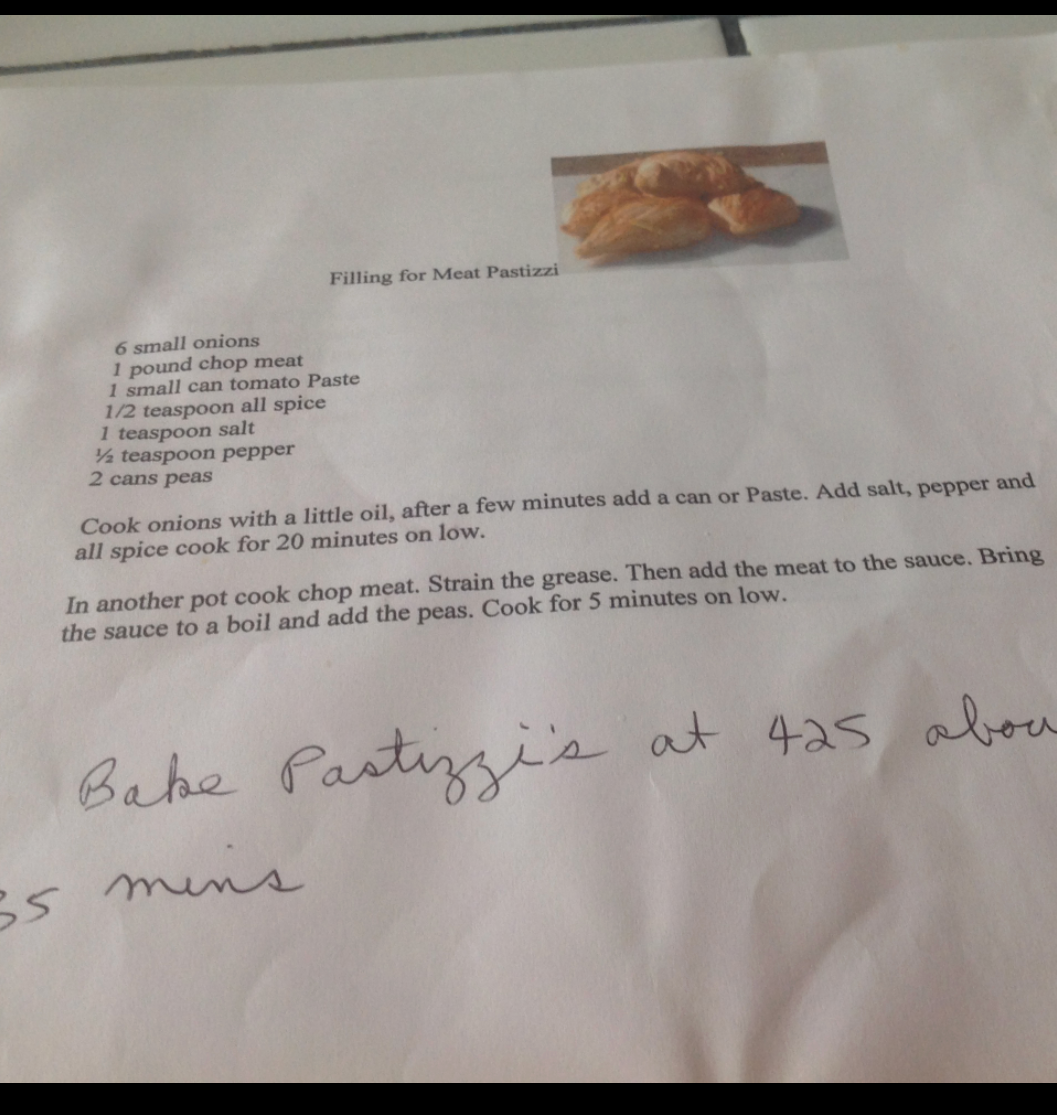 Filling for Meat Pastizzi
6 small onions
1 pound chop meat
1 small can tomato Paste
1/2 teaspoon all spice
1 teaspoon salt
½ teaspoon pepper
2 cans peas
Cook onions with a little oil, after a few minutes add a can or Paste. Add salt, pepper and
all spice cook for 20 minutes on low.
In another pot cook chop meat. Strain the grease. Then add the meat to the sauce. Bring
the sauce to a boil and add the peas. Cook for 5 minutes on low.
Bake Pastizzi's at 425 abou
35 mins